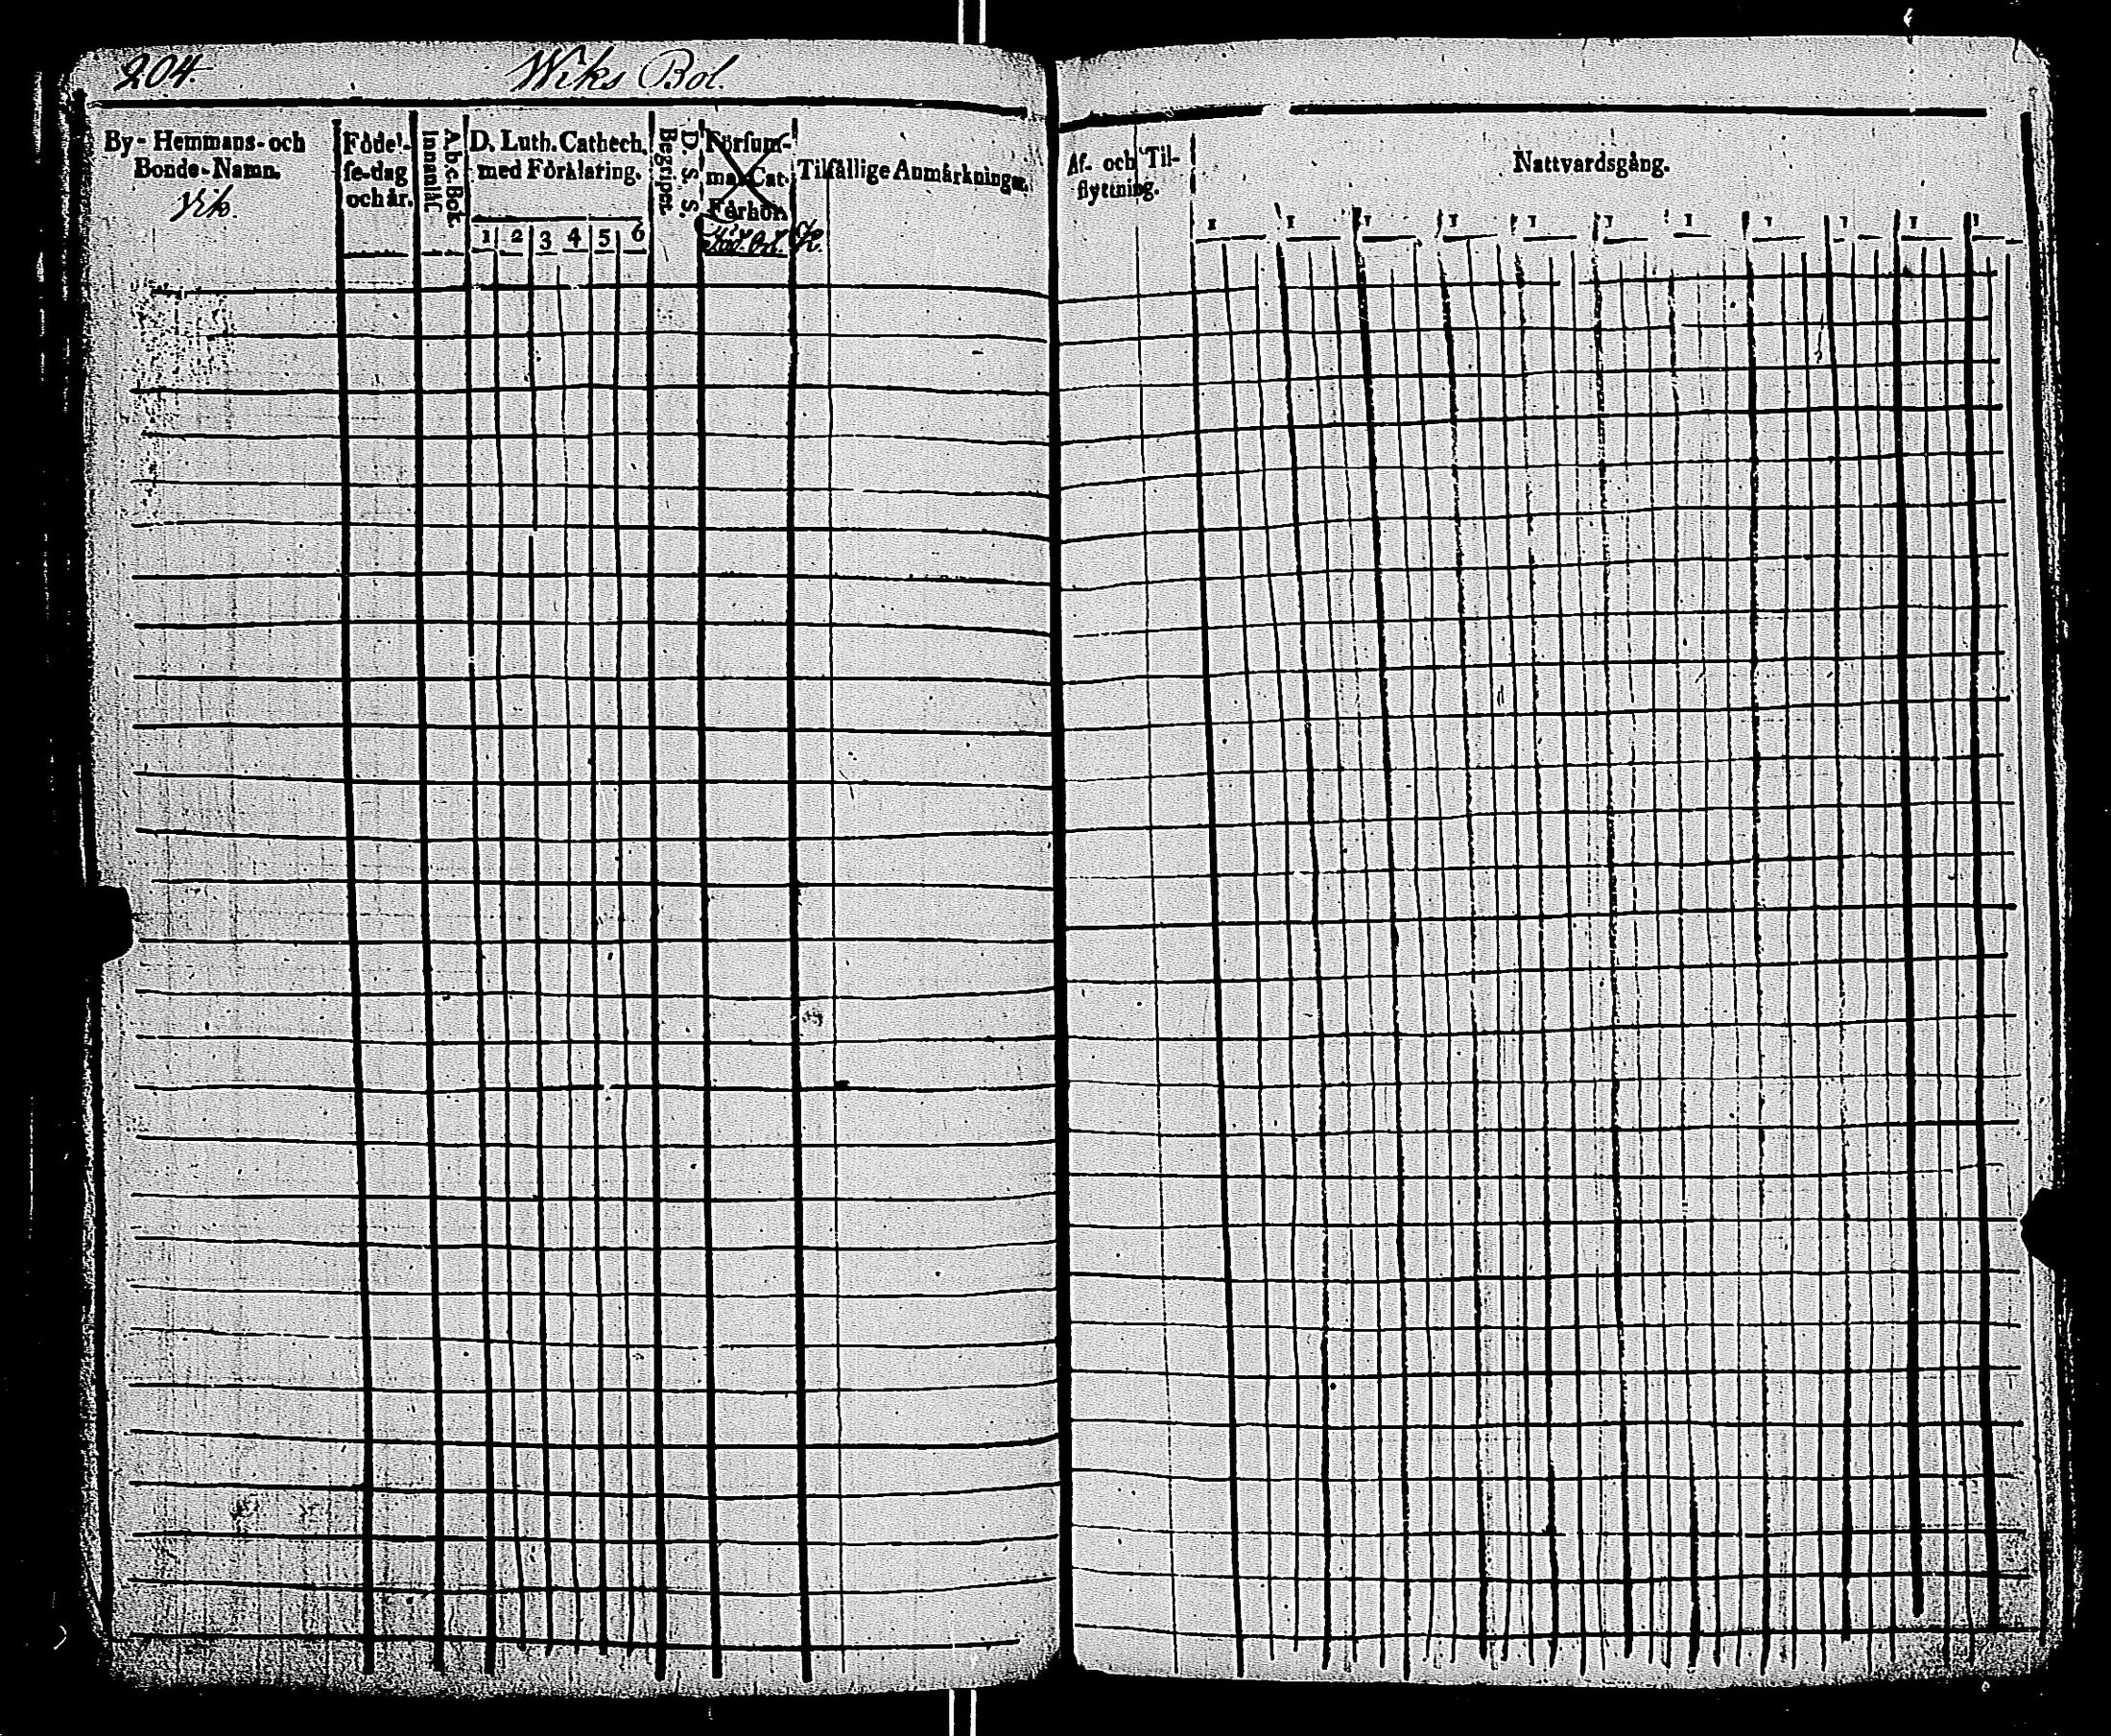 204.
Wiks Bol.
By- Hemmans- och
Bonde-Namn.
Vik.
Födel-
se-dag
och år.
A.b.c.Bok
Innanläs
D. Luth. Cathech.
med Förklaring.
1 2 3 4 5 6
D. S. S.
Begriper
Försum-
ma Cat.
Förhör.
K.
Tilfällige Anmärkningar.
Af- och Til-
flyttning.
Nattvardsgång.
1 1 1 1 1 1 1 1 1 1 1